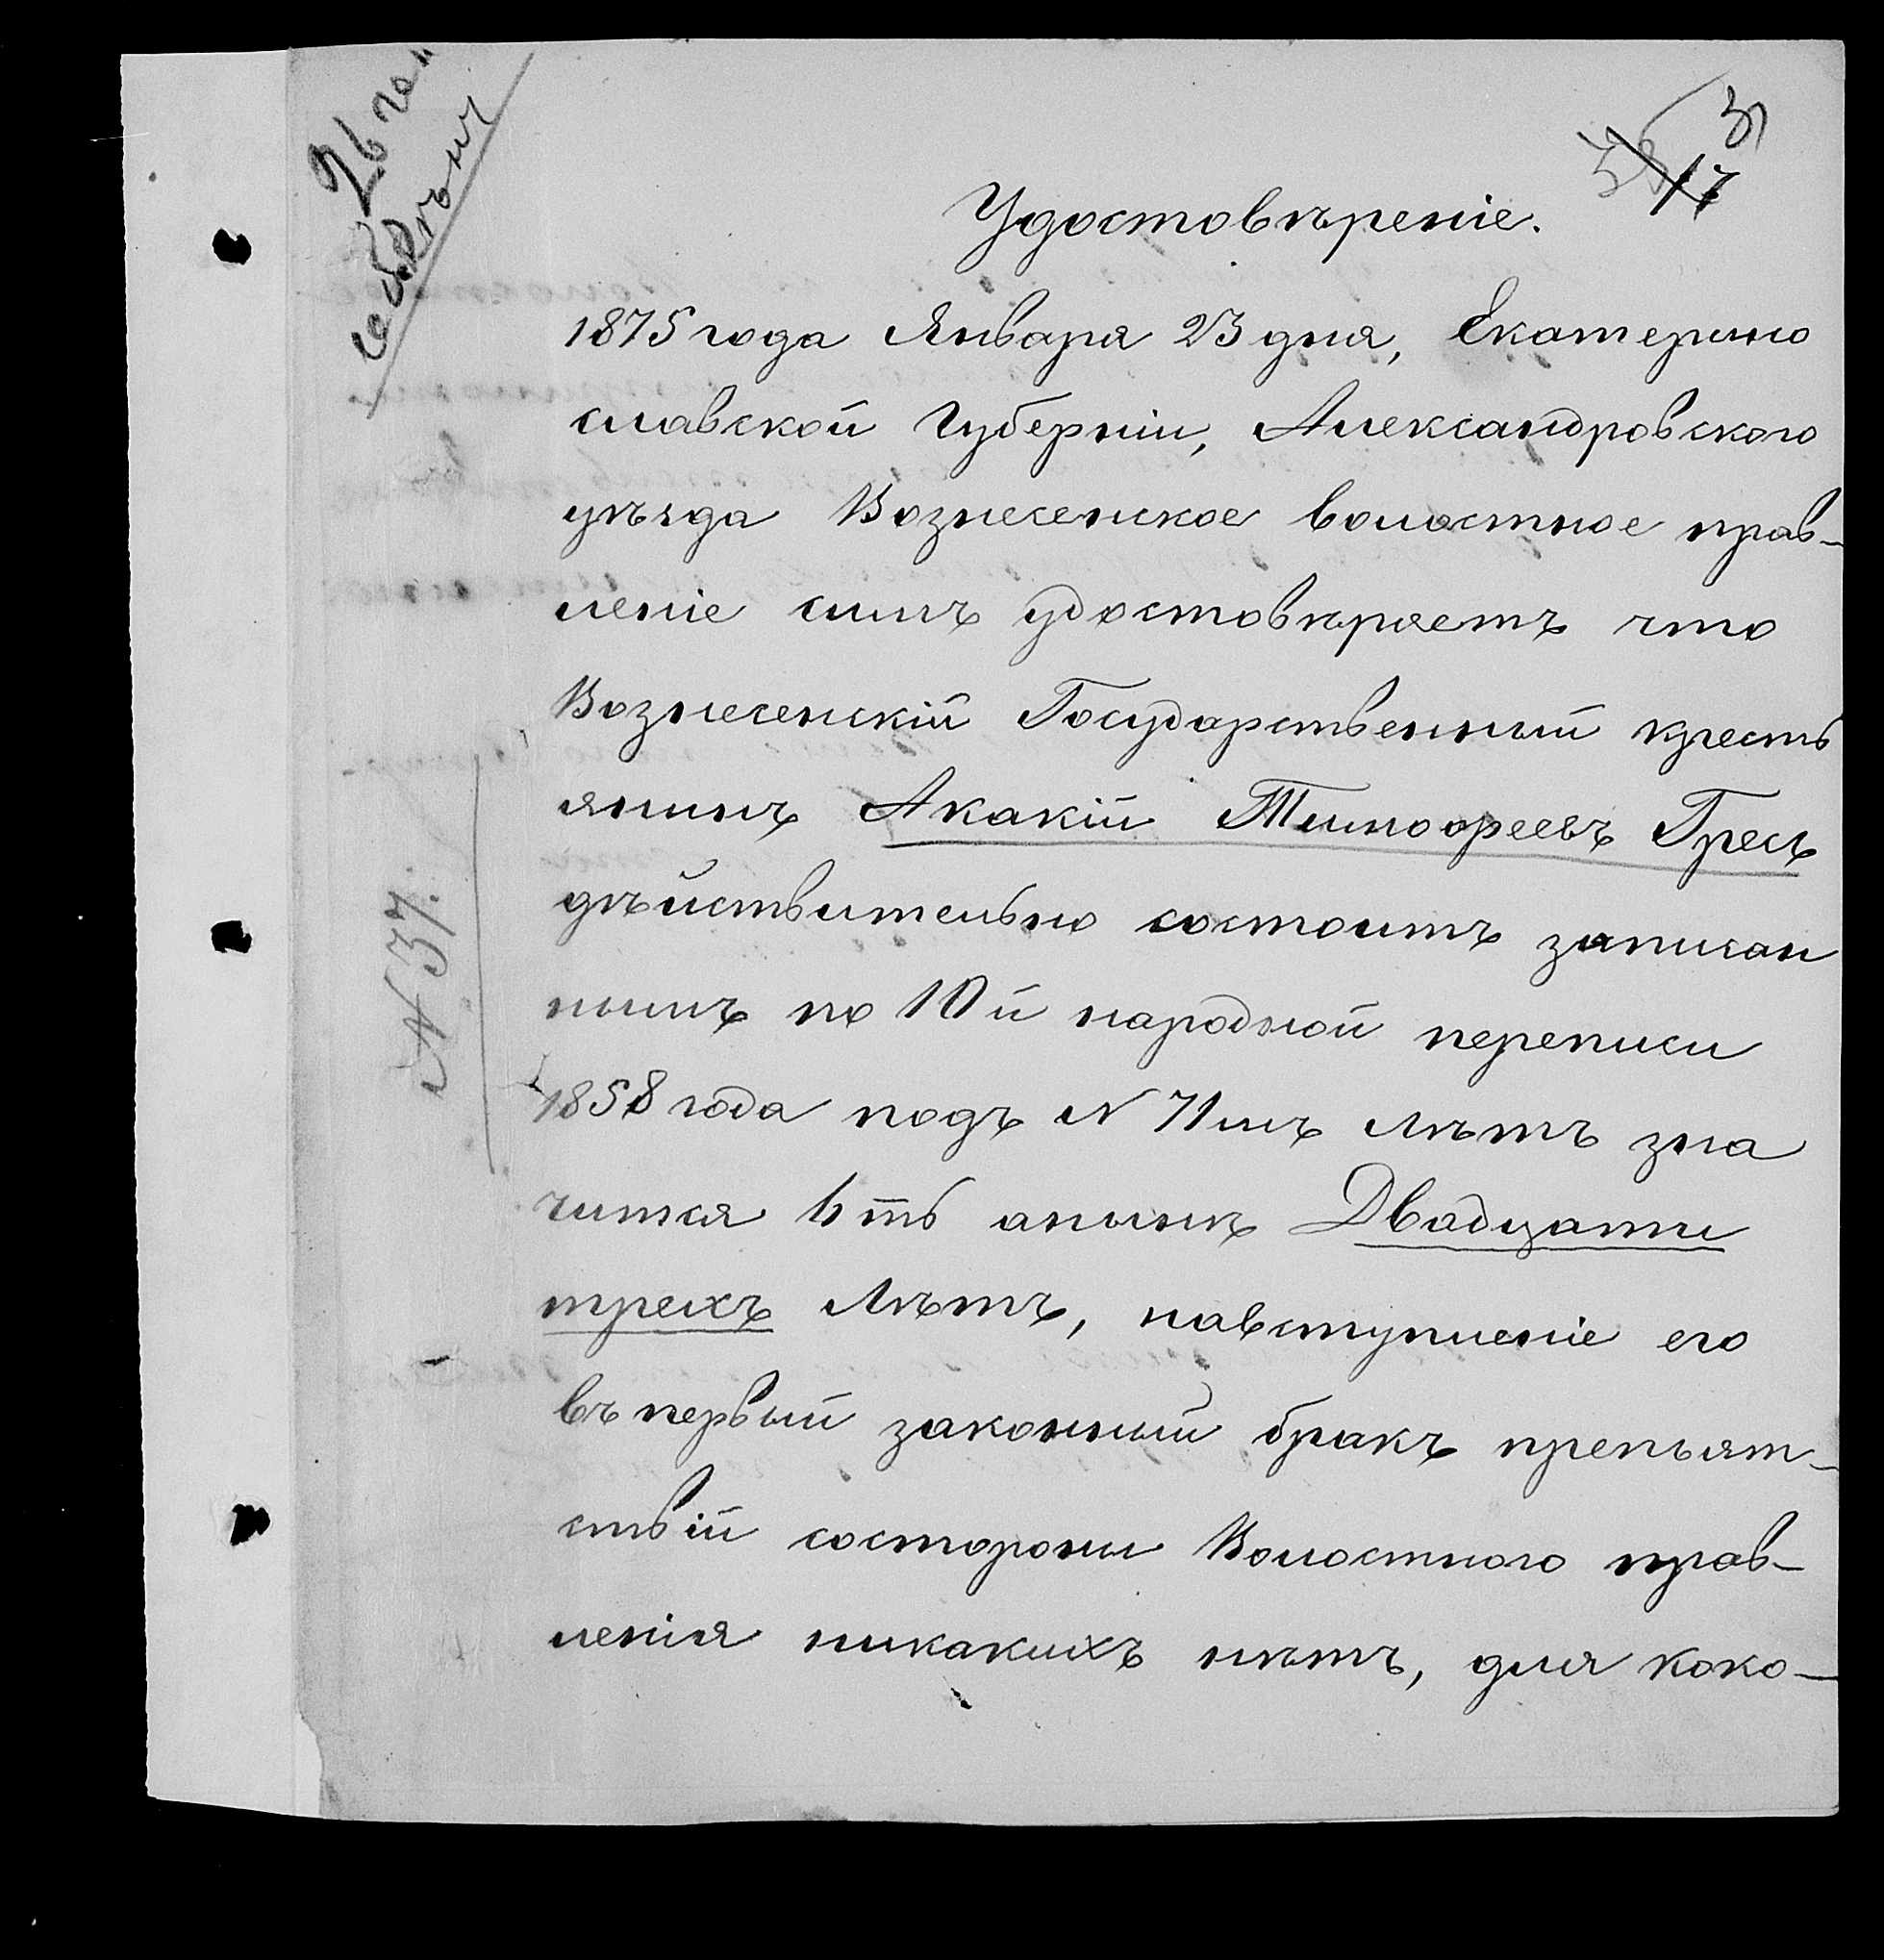 31
17
Удостовѣреніе.
1875 года Января 23 дня, Екатерино
славской Губерніи, Александровского
уѣзда Вознесенское волостное прав-
леніе симъ удостовѣряетъ что
Вознесенскій Государственный кресть
янинъ Акакій Тимофеевъ Гресь
дѣйствительно состоитъ записан
нымъ по 10й народной переписи
1858 года подъ N 71мъ лѣтъ зна
чится 6ть анынѣ Двадцати
трехъ лѣтъ, навступленіе его
въ первый законный бракъ препят-
ствій состороны Волостного прав-
ленія никакихъ нѣтъ, для како-
N 37.